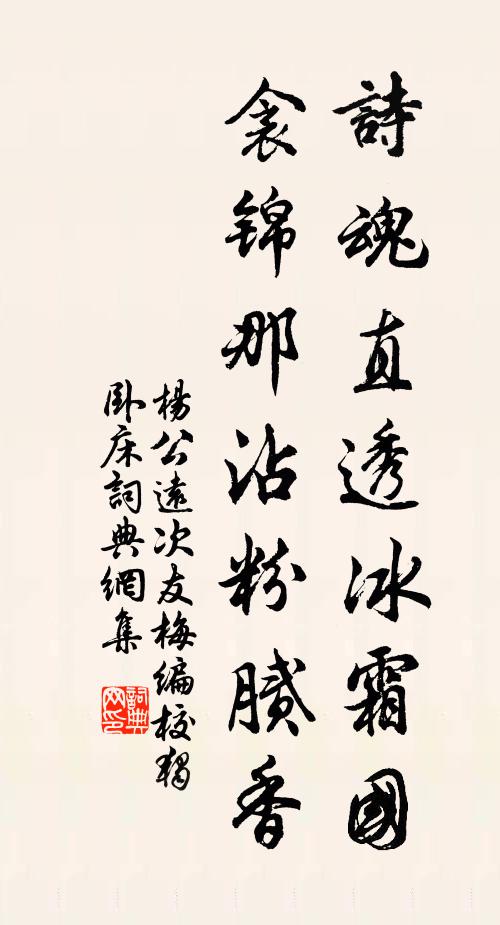 詩魂直透冰霜國
衾錦那沾粉膩香
楊公遠次友梅編校獨
臥床詞典網集
詞典网印